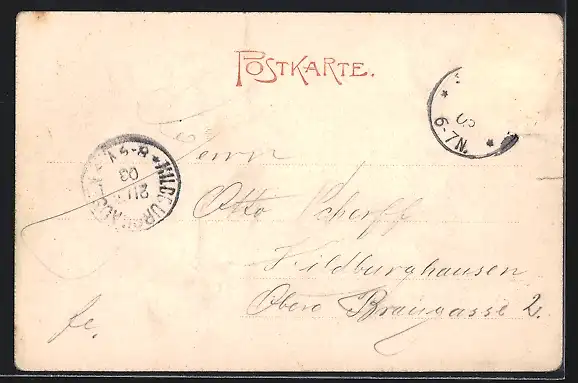 POSTKARTE.
6-7N.
HILDBURGHAUSEN
8-9V.
03
Herrn
Otto Scherff
Hildburghausen
Obere Braugasse 2.
fr.